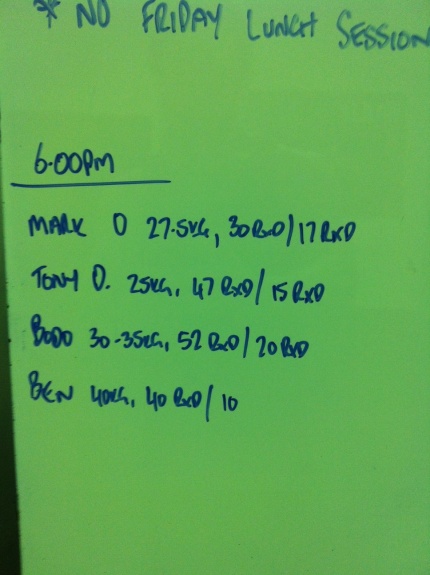 * NO FRIDAY LUNCH SESSION
6.00PM
MARK O 27.5KG, 30 RXD/17 RXD
TONY D. 25KG, 47 RXD/15 RXD
BODO 30-35KG, 52 RXD/20 RXD
BEN 40KG, 40 RXD/10